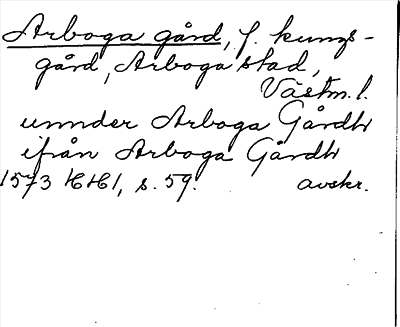 Arboga gård, f. kungs-
gård, Arboga stad,
Västm. l.
unnder Arboga Gårdh
ifrån Arboga Gårdh
1573 HH1, s. 59. avskr.